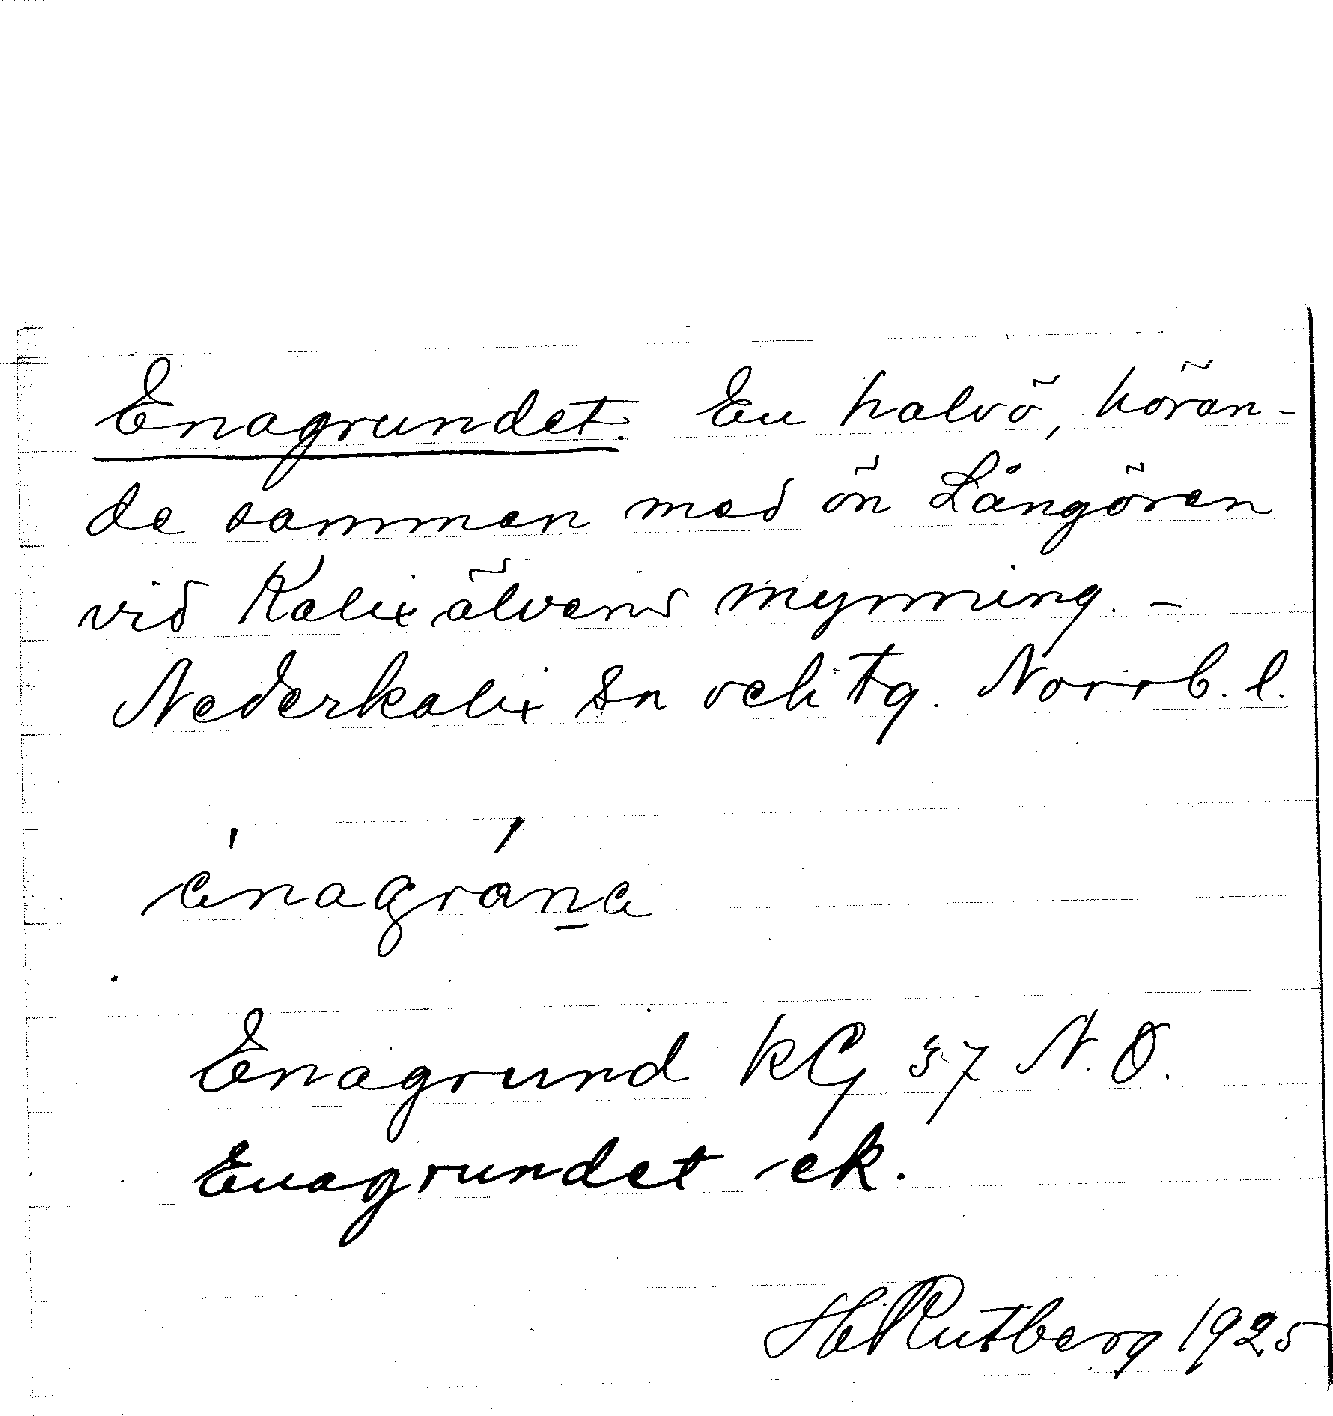 Enagrundet. En halvö, höran-
de samman med ön Långören
vid Kalixälvens mynning. -
Nederkalix sn och tg. Norrb. l.
énagróna
Enagrund KG 37 N.O.
Enagrundet ek.
H Rutberg 1925